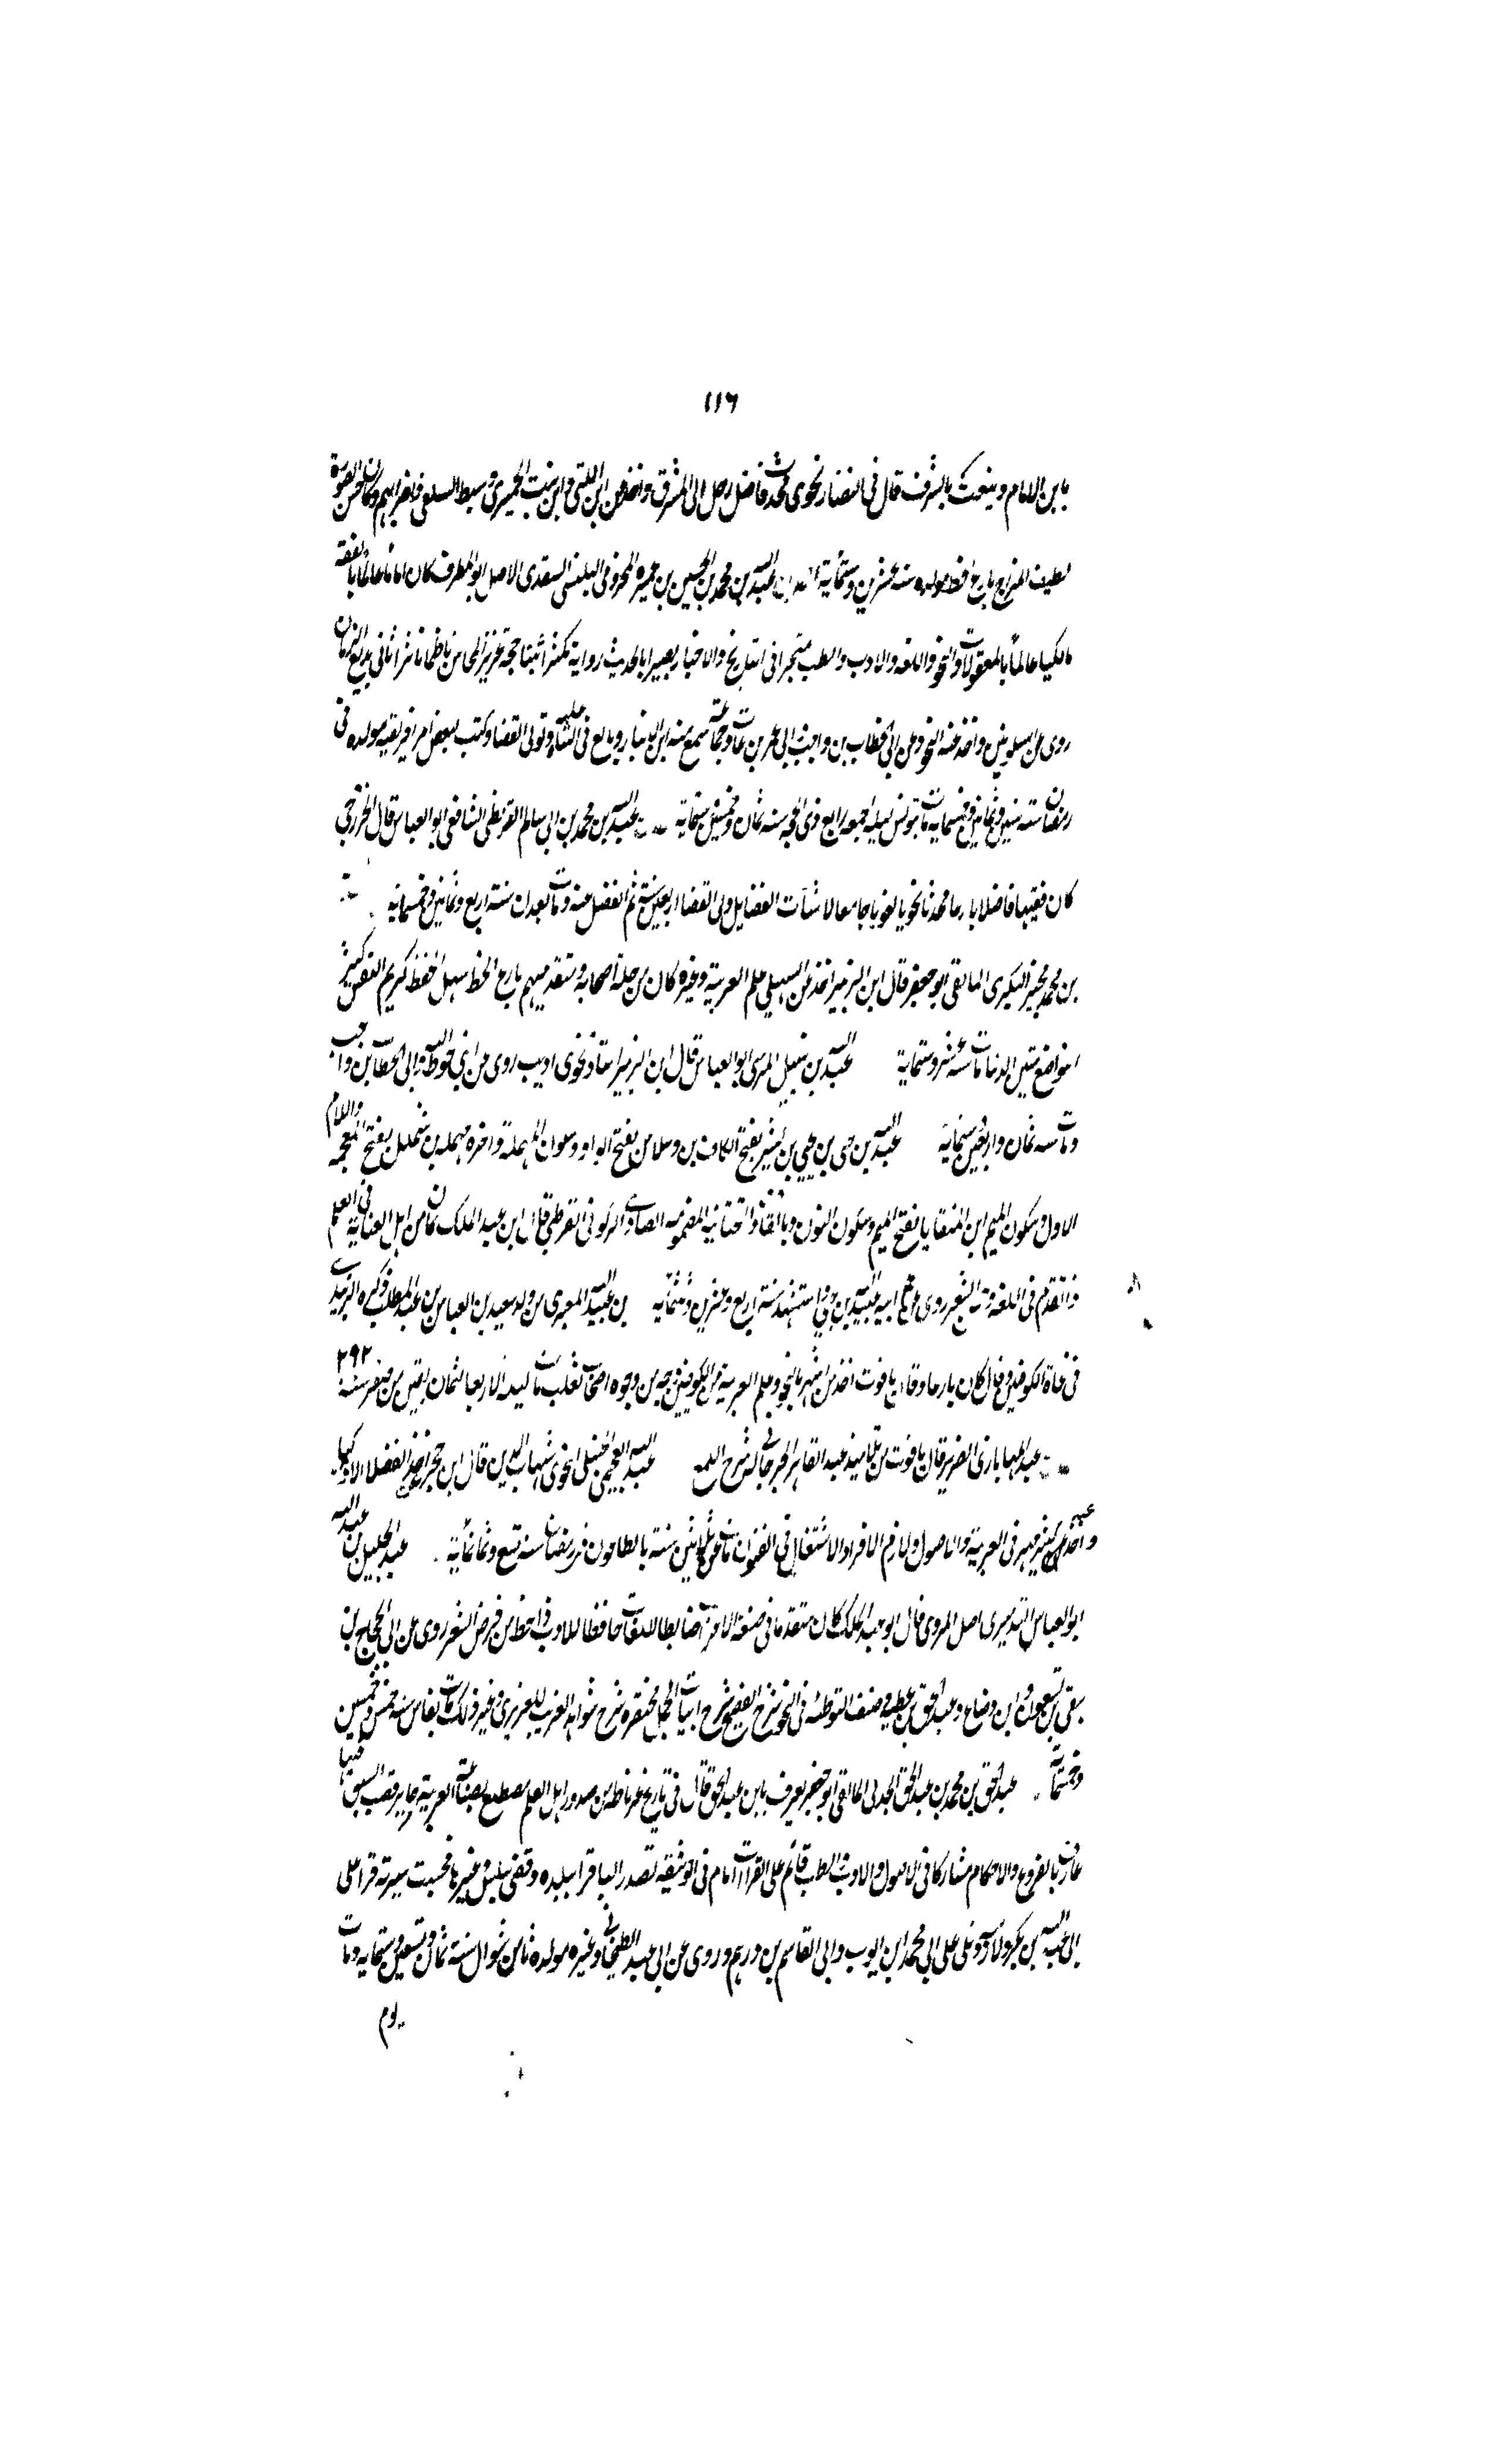 ١١٦
بابن الامام وينعت بالشرف قال فى النضار نحوى محدث فاضل رحل الى المشرق واخذ عن ابن اللتى وابن بنت الجميزى وسبط السلفى وكان حسن الصورة
لطيف المزاج بارع الخط مولده سنة عشرين وستمائة بن عبد الله بن محمد بن الحسين بن عميره المخزومى البلنسى الاصل ابو المطرف كان اماما عالما بالفقه
مالكيا عالماً بالمعقولات والنحو واللغه والادب والطب متبحرا فى التاريخ والاخبار بصيرا بالحديث رواية مكثرا ثبتا حجة عزيز المحاسن ناظما ناثرا ثانى بديع الزمان
روى عن الشلوبين واخذ عنه النحو وعن ابى الخطاب بن واجب وابى عمر بن عات وجماعة سمع منه ابن الابار وتولى القضا وكتب لبعض امرا افريقيه مولده فى
رمضان سنة ثنتين وثمانين وخمسمايه مات بتونس ليلة الجمعه رابع ذى الحجه سنه ثمان وخمسين وستماية عبد الله بن محمد بن ابى سالم القريظى الشافعى ابو العباس قال الخزرجى
كان فقيها فاضلا بارعا محدثا نحويا لغويا جامعا لاشتات الفضايل ولى القضا اربعين سنة ثم انفصل عنه ومات بعدان سنة اربع وثمانين وخمسمايه
بن محمد بن مجبر البكرى المالقى ابو جعفر قال ابن الزبير اخذ عن السهيلى علم العربية وغيره كان من جلة اصحابه ومتقدميهم بارع الخط سهل اللفظ كريم النفس كثير
التواضع متين الدين مات سنة عشر وستماية عبد الله بن نبيل المرسى ابو العباس قال ابن الزبير استاذ نحوى اديب روى عن ابن حوط الله وابى الخطاب بن واجب
ومات سنه ثمان واربعين وستماية عبد الله بن يحيى بن يحيى بن كثير بفتح الكاف بن وسلاس بفتح الواو وسكون المهملة واخره مهمله بن شملل بفتح المعجمه واللام
الاول وسكون الميم ابن المنقايا بفتح الميم وسكون النون وبالقاف والتحتانية المصادى القرطبى قال ابن عبد الملك كان من اهل العناية فى العلم
والتقدم فى اللغة والشعر روى عن عم ابيه عبيد الله بن يحيى واستشهد سنة اربع وعشرين وثلثمائه بن عبد الله المعبدى من ولد معبد بن العباس بن عبد المطلب ذكره الزبيدى
فى نحاة الكوفيين وقال كان بارعا وقال ياقوت احد من اشتهر بالنحو وعلم العربية من الكوفيين وجه من وجوه اصحاب ثعلب مات ليلة الاربعا لثمان بقين من صفر سنة ٢٩٢
عبد المهاباذى الضرير قال ياقوت من تلاميذ عبد القاهر الجرجانى له شرح اللمع عبد الله العجيمى الحنبلى النحوى شهاب الدين قال ابن حجر احد الفضلا الاذكيا
واخذ عن كثير ومهر فى العربية والاصول ولازم الاقراء والاشتغال فى الفنون مات عن ثلاثين سنة بالطاعون فى رمضان سنه تسع وثمانمائية عبد الجليل بن عبد الله
ابو العباس التدميرى اصل المروى قال ابن عبد الملك كان متقدما فى صنعة الاعراب ضابطا للغات حافظا للادب ذا حظ من قرض الشعر روى عن ابى الحجاج بن
يبقى بن يسعون وابن وضاح وعبد الحق بن عطيه وصنف التوطئه فى النحو شرح الفصيح شرح ابيات الجمل مختصره شرح شواهد الغريب للعزيزى وغير ذلك مات بفاس سنة خمس وخمسين
وخمسمائة عبد الحق بن محمد بن عبد الحق الجدلى المالقى ابو جعفر يعرف بابن عبد الحق قال فى تاريخ غرناطه من صدور اهل العلم مضطلع بصناعة العربية حايز قصب السبق فيها
عارف بالفروع والاحكام مشاركا فى الاصول والادب والطب قائم على القراات امام فى الوثيقه تصدر للاقرا ببلده وقضى ببلش وغيرها فحسنت سيرته قرا على
ابى عبد الله بن بكر ولازمه وتلى على ابى محمد ابن ايوب وابى القاسم بن درهم وروى عن ابى عبد الله الطنجالى وغيره مولده ثامن شوال سنة ثمان وتسعين وستمايه ومات
يوم